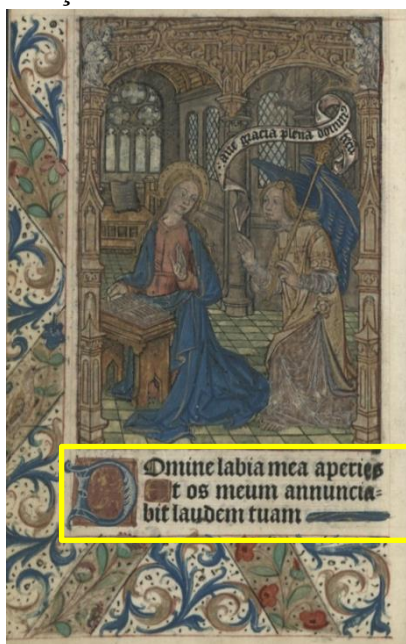 Aue gracia plena
Domine labia mea aperies
Et os meum annuncia=
bit laudem tuam